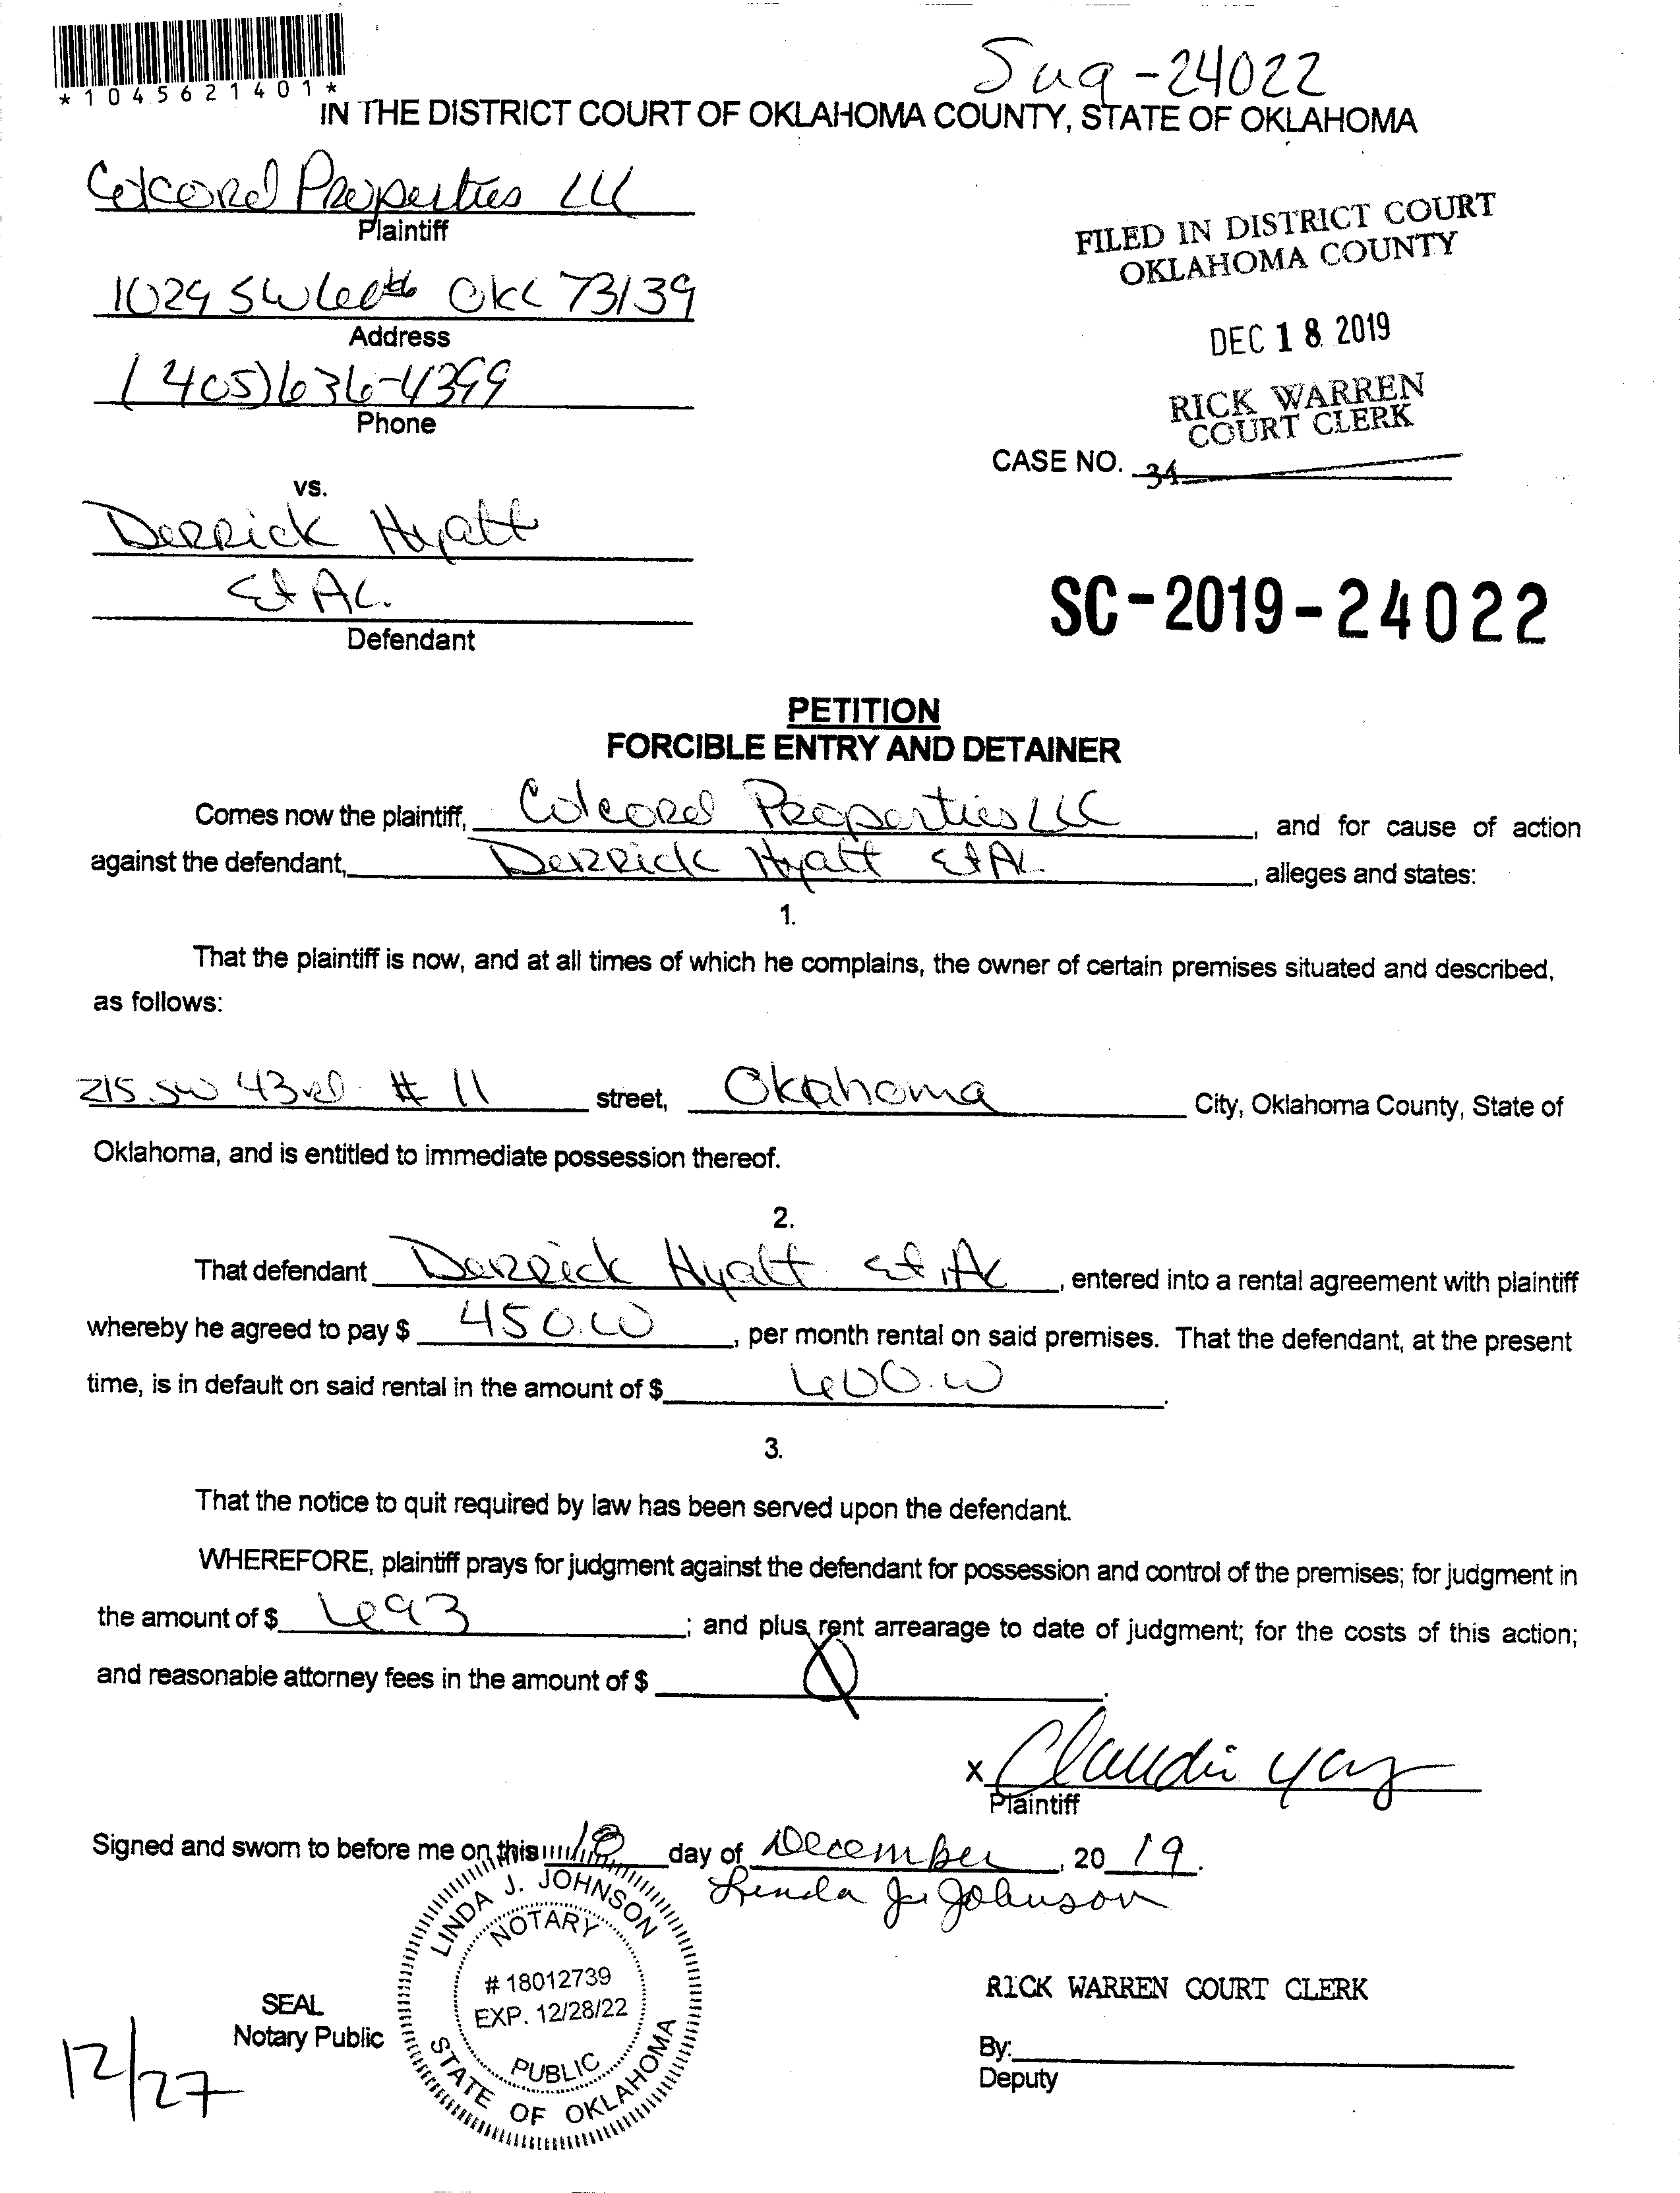 *1045621401*
-24022
IN THE DISTRICT COURT OF OKLAHOMA COUNTY, STATE OF OKLAHOMA
Colcord Properties LLC
Plaintiff
1029 SW 66th OKC 73139
Address
(405)636-4399
Phone
FILED IN DISTRICT COURT
OKLAHOMA COUNTY
DEC 18 2019
RICK WARREN
COURT CLERK
CASE NO. 34
vs.
Derrick Hyatt
Et Al.
Defendant
SC-2019-24022
PETITION
FORCIBLE ENTRY AND DETAINER
Comes now the plaintiff, Colcord Properties LLC, and for cause of action
against the defendant, Derrick Hyatt Et Al, alleges and states:
1.
That the plaintiff is now, and at all times of which he complains, the owner of certain premises situated and described,
as follows:
215 SW 43rd # 11 street, Oklahoma City, Oklahoma County, State of
Oklahoma, and is entitled to immediate possession thereof.
2.
That defendant Derrick Hyatt et Al, entered into a rental agreement with plaintiff
whereby he agreed to pay $ 450.00, per month rental on said premises. That the defendant, at the present
time, is in default on said rental in the amount of $ 600.00.
3.
That the notice to quit required by law has been served upon the defendant.
WHEREFORE, plaintiff prays for judgment against the defendant for possession and control of the premises; for judgment in
the amount of $ 693; and plus rent arrearage to date of judgment; for the costs of this action;
and reasonable attorney fees in the amount of $ Ø.
x Claudia
Plaintiff
Signed and sworn to before me on this 18 day of December, 2019.
Linda J. Johnson
LINDA J. JOHNSON
NOTARY
# 18012739
EXP. 12/28/22
PUBLIC
STATE OF OKLAHOMA
SEAL
Notary Public
12/27
RICK WARREN COURT CLERK
By:
Deputy